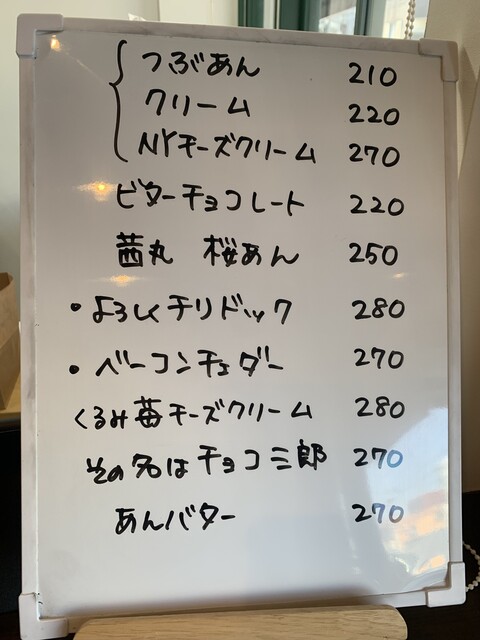 つぶあん 210
クリーム 220
NYチーズクリーム 270
ビターチョコレート 220
茜丸 桜あん 250
・よろしくチリドック 280
・ベーコンチェダー 270
くるみ苺チーズクリーム 280
その名はチョコ三郎 270
あんバター 270